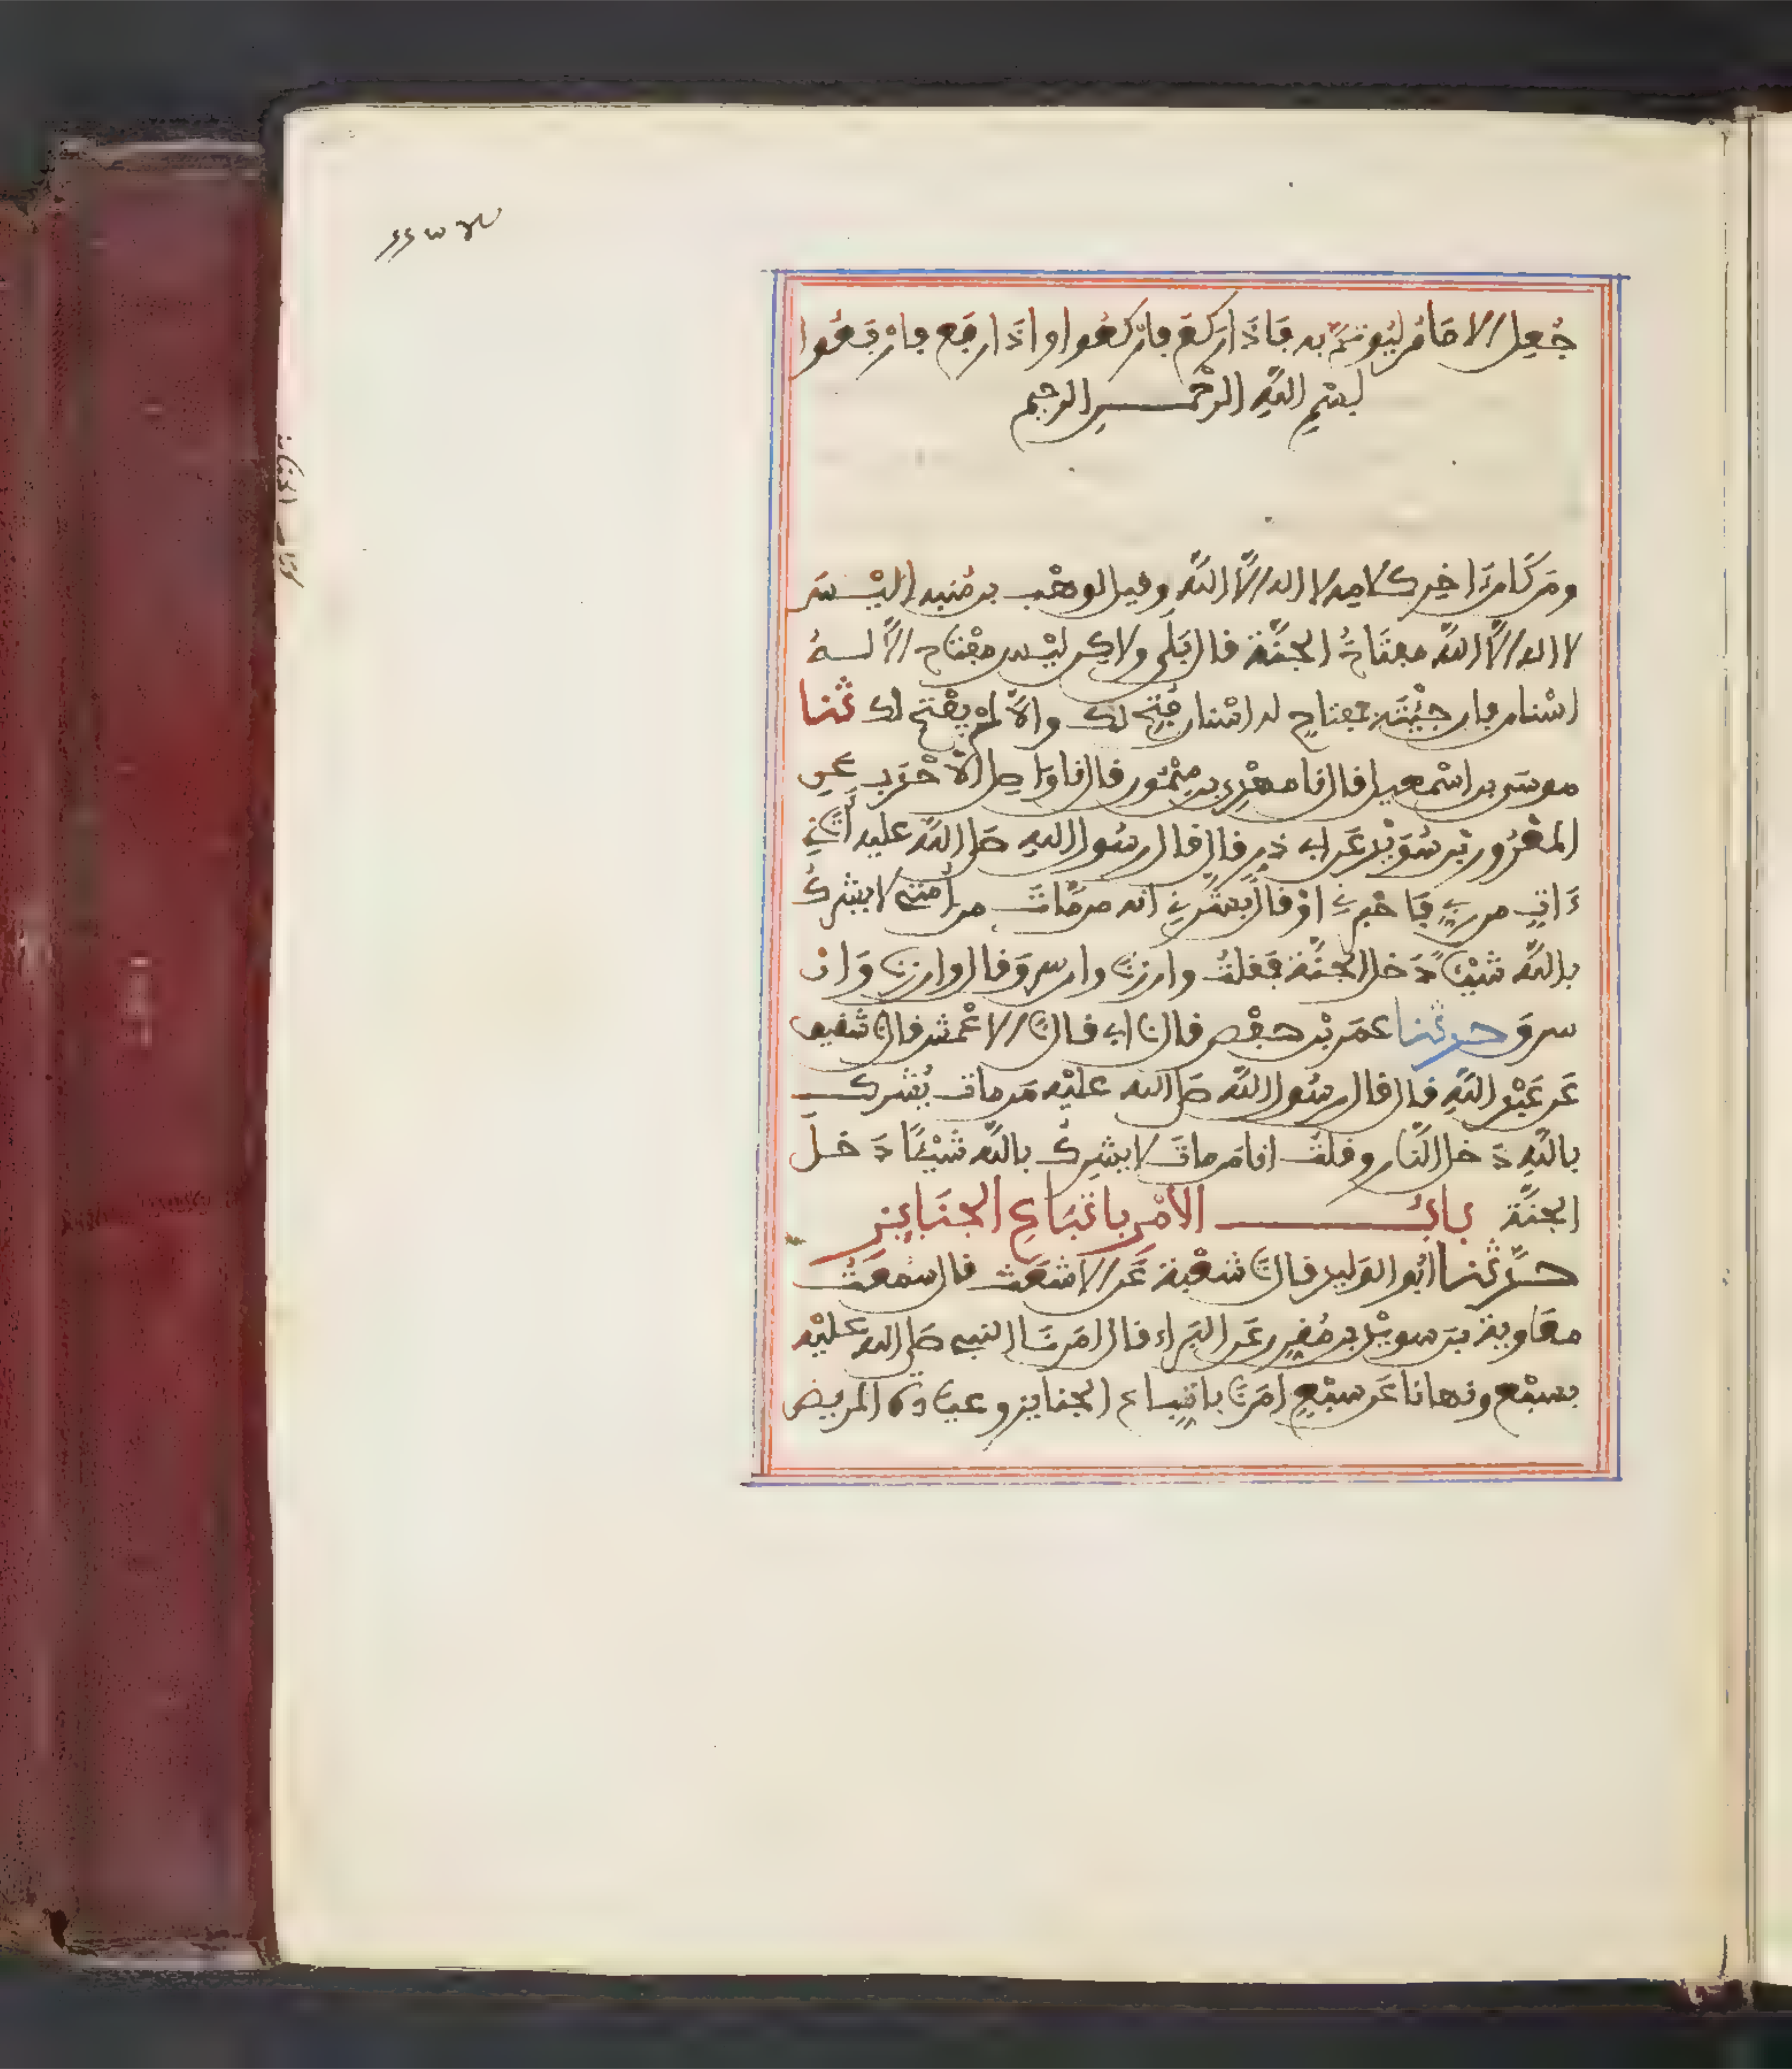 جُعِل الامَامُ ليُوتمَّ به فَاذَا ركَعَ فارْكعُوا واذَا رفَع فارْفَعُوا
بسْمِ اللَّهِ الرحْمٰن الرحِيم
ومَن كَانَ ءَاخِر كلامه لا اله الَّا اللَّه وقيل لوهْب بن مُنبه اليْسَ
لا اله الَّا اللَّه مفتَاحُ الجنَّة قال بَلَى ولاكِن ليْس مفْتاح الَّا لهُ
اسْنان فان جِيْتَ بمفتاحٍ له اسْنان فُتِح لك والَّا لمْ يفْتح لك ثنا
موسَى بن اسْمعيل قال نا مهْدِي بن ميْمُون قال نا وَاصِل الاحْدَب عنِ
المعْرُور بْن سُوَيْد عَن ابي ذرٍ قال قال رسُول اللهِ صلى اللَّه عليه أتَانِي
ءَاتٍ من ربِّي فَاخْبرنِي اوْ قال بَشَّرنِي انه من مَّاتَ من أمتِي لا يشْرِكُ
باللَّه شيْئاً دَخل الجنَّة فقلتُ وان زنَى وان سرَقَ قال وان زنَى وَان
سرقَ حدثنا عمَر بْن حفْص قال نا ابي قال نَا الاعْمش قال نا شقيق
عَن عَبْد اللَّهِ قال قال رسُول اللَّه صلى الله عليْه مَن مات يُشْرك
باللَّهِ دَخل النَّار وقلتُ انا مَن ماتَ لا يشْرِكُ باللَّه شيْئاً دَخل
الجنَّة بابُ الامْرِ باتّبَاعِ الجنَايِز
حدَّثنا ابُو الوَليد قال نَا شعْبة عَن الاشْعَث قال سَمعتُ
معَاوية بن سويْد بن مُقرِّن عَن البَراء قال امَرنَا النبي صلى الله عليْه
بسبْع ونهانا عَن سبْعٍ امَرنَا باتّبَاع الجنايز وعيادة المريض